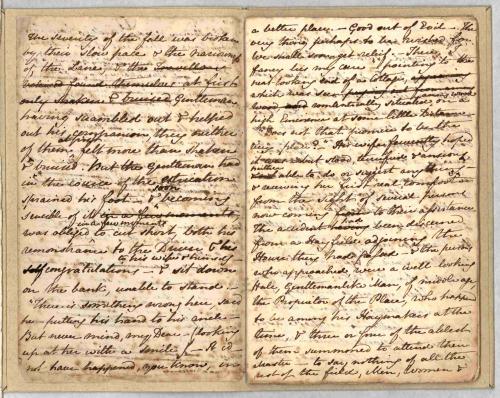 the severity of the fall was broken
by their slow pace & the narrowness
of the Lane; & the
found themselves at first
only shaken & bruised. Gentleman
having scrambled out & helped
out his companion, they neither
of them at first felt more than shaken
& bruised. But the Gentleman had
in the course of the extrication
sprained his foot & soon becoming
sensible of it
in a few moments
was obliged to cut short, both his
remonstrance to the Driver & his
congratulations to his wife & himself
& sit down
on the bank, unable to stand.
"There is something wrong here said
he putting his hand to his ancle
But never mind, my Dear (looking
up at her with a smile) It cd
not have happened, you know, in
a better place. Good out of Evil. The
very thing perhaps to be wished for.
We shall soon get relief. There, I
fancy lies my cure" pointing to the
neat looking end of a Cottage,
which was seen
wood romantically situated on a
high Eminence at some little Distance
"Does not that promise to be the
very place?" His wife fervently hoped
it was but stood, terrified & anxious
neither able to do or suggest anything
& receiving her first real comfort
from the sight of several persons
now coming to their assistance
The accident had been discerned
from a Hayfield adjoining the
House they had passed & the persons
who approached, were a well looking
Hale, Gentlemanlike Man, of middle age
the Proprietor of the Place, who happened
to be among his Haymakers at the
time, & three or four of the ablest
of them summoned to attend their
Master to say nothing of all the
rest of the field, Men, Women &